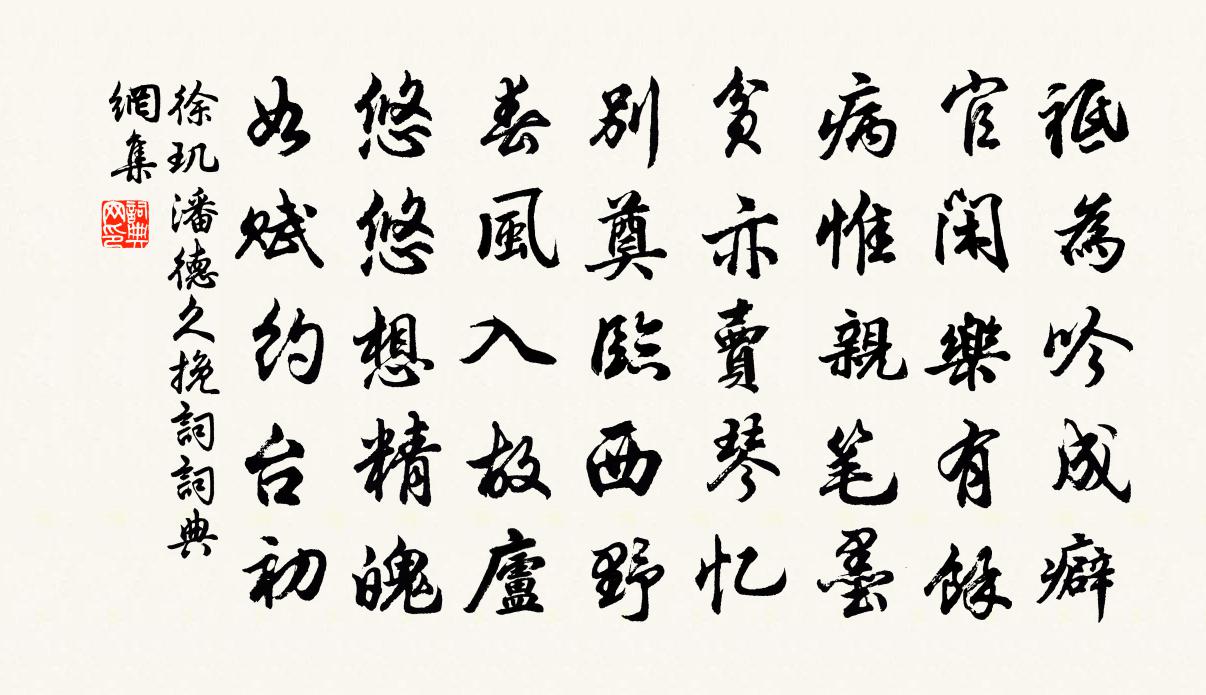 祗為吟成癖
官閑樂有餘
病惟親笔墨
貧亦賣琴忆
別奠臨西野
春風入故廬
悠悠想精魄
如赋約台初
徐玑潘德久挽詞詞典
網集
詞典网印